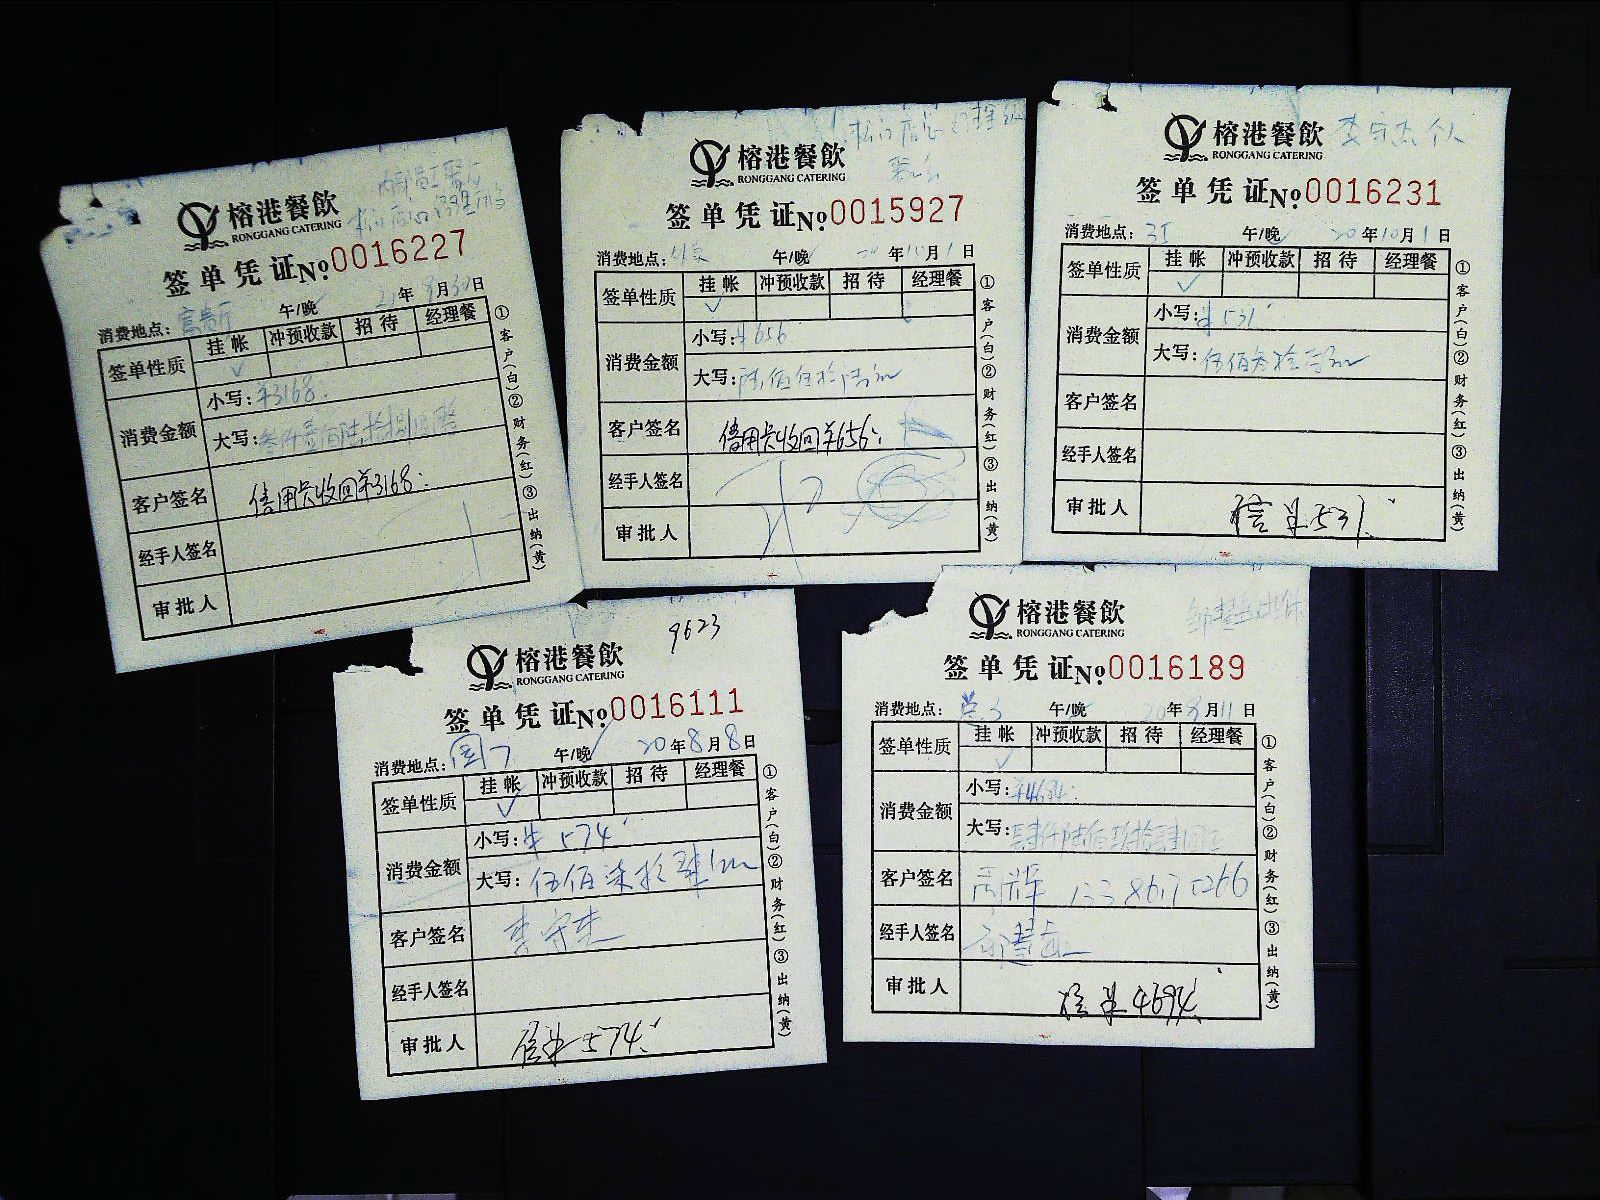 榕港餐飲
RONGGANG CATERING
签单凭证 No. 0016227
消费地点: 午/晚 20年9月30日
签单性质 挂帐 冲预收款 招待 经理餐
消费金额
小写: ¥3168.
大写: 叁仟壹佰陆拾捌
客户签名 信用卡收回¥3168.
经手人签名
审批人
①客户(白)②财务(红)③出纳(黄)
榕港餐飲
RONGGANG CATERING
签单凭证 No. 0015927
消费地点: 午/晚 20年10月1日
签单性质 挂帐 冲预收款 招待 经理餐
消费金额
小写: ¥656
大写: 陆佰伍拾陆元
客户签名 信用卡收回¥656.
经手人签名
审批人
①客户(白)②财务(红)③出纳(黄)
榕港餐飲
李守杰个人
RONGGANG CATERING
签单凭证 No. 0016231
消费地点: 午/晚 20年10月1日
签单性质 挂帐 冲预收款 招待 经理餐
消费金额
小写: ¥531
大写: 伍佰叁拾壹元
客户签名
经手人签名
审批人 信 ¥531.
①客户(白)②财务(红)③出纳(黄)
9623
榕港餐飲
RONGGANG CATERING
签单凭证 No. 0016111
消费地点: 午/晚 20年8月8日
签单性质 挂帐 冲预收款 招待 经理餐
消费金额
小写: ¥574
大写: 伍佰柒拾肆元
客户签名 李守杰
经手人签名
审批人 信 ¥574.
①客户(白)②财务(红)③出纳(黄)
榕港餐飲
RONGGANG CATERING
签单凭证 No. 0016189
消费地点: 午/晚 20年9月11日
签单性质 挂帐 冲预收款 招待 经理餐
消费金额
小写: ¥4694.
大写: 肆仟陆佰玖拾肆
客户签名 周辉 13386175266
经手人签名
审批人 ¥4694.
①客户(白)②财务(红)③出纳(黄)